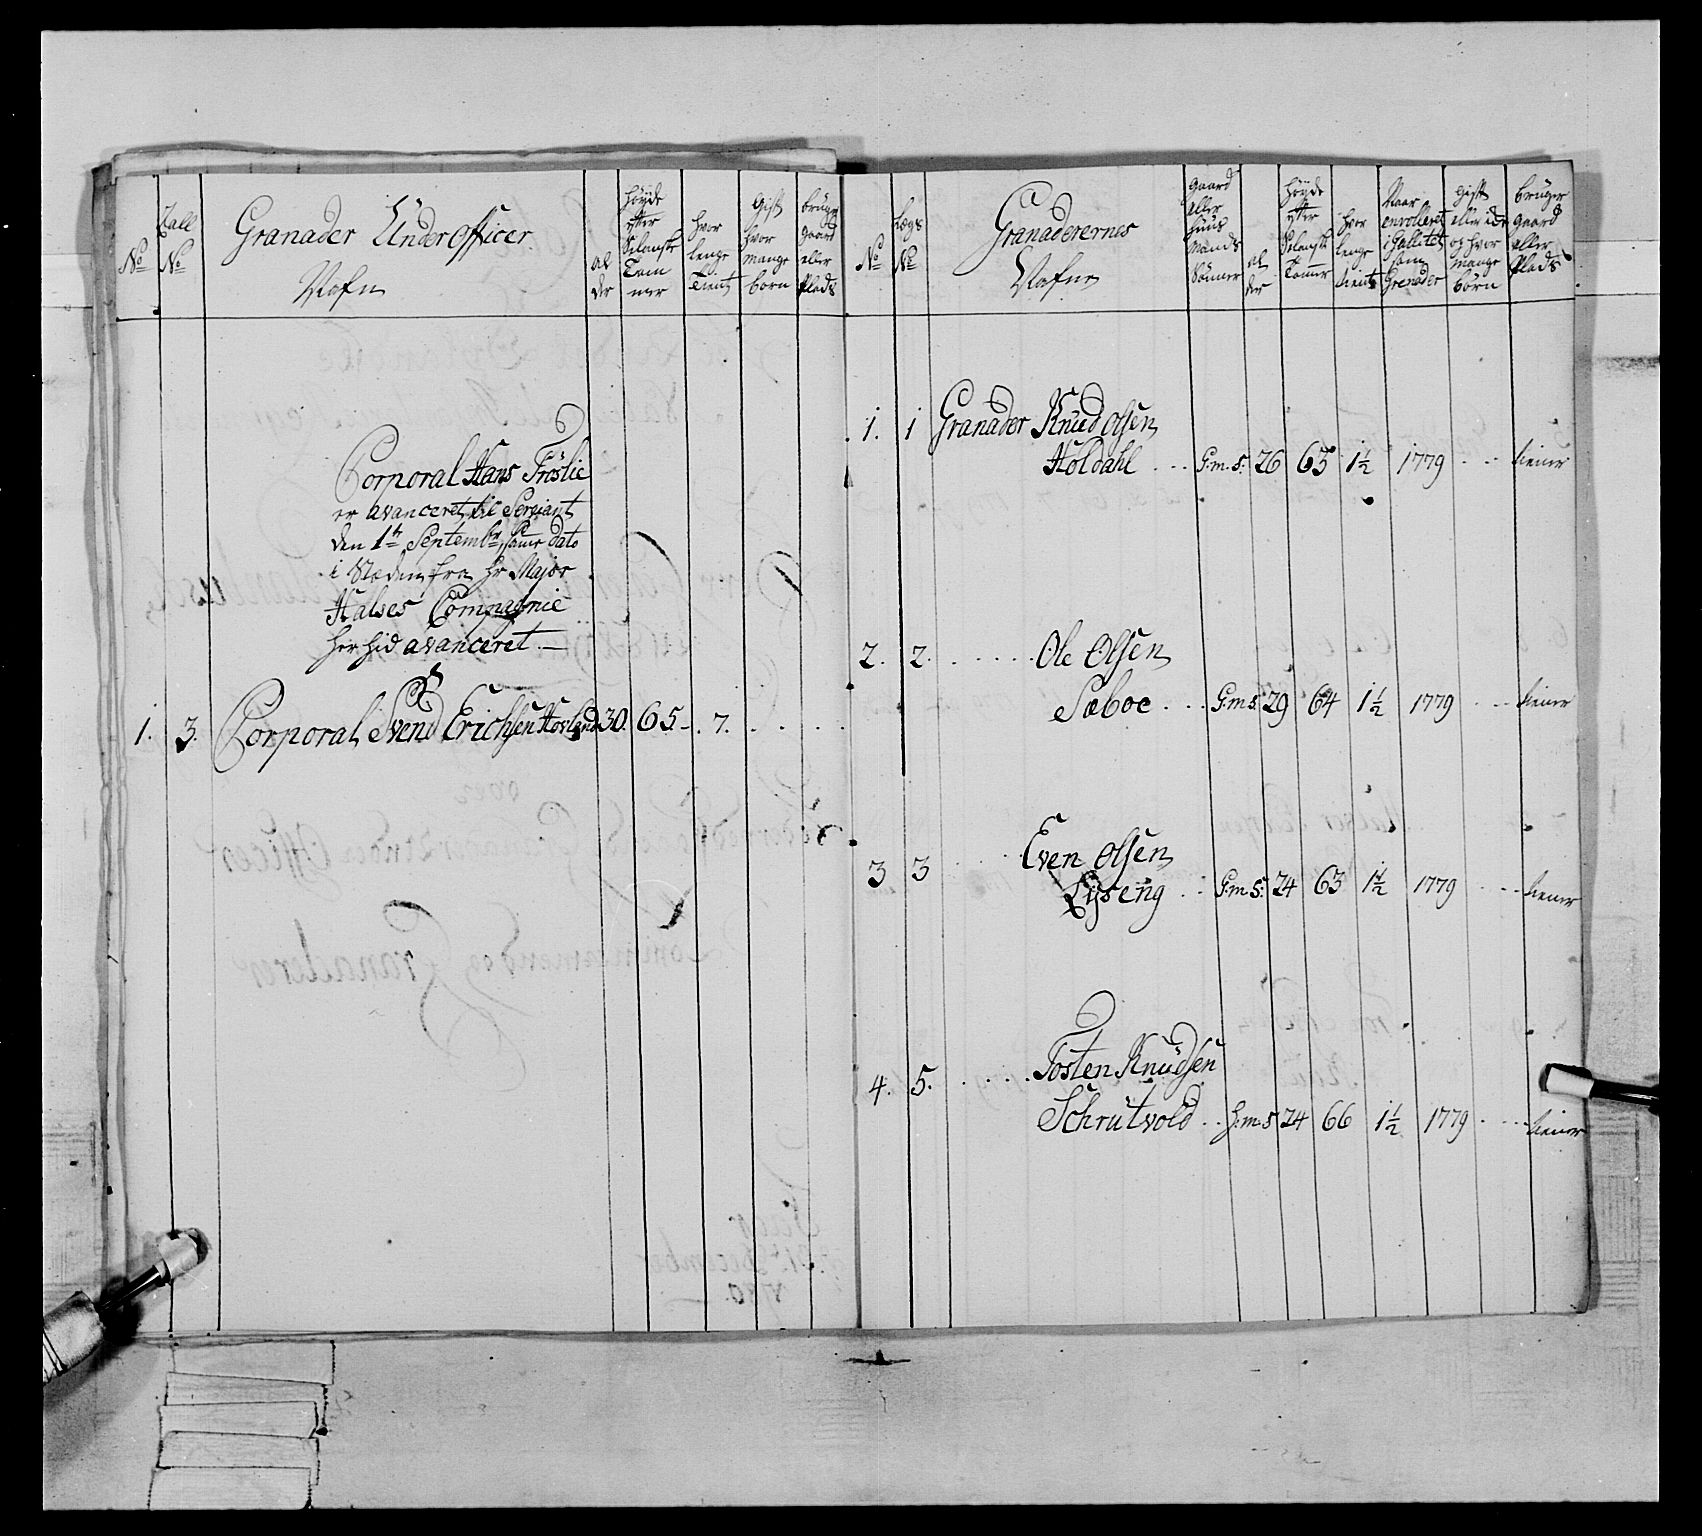 No
Tall No
Granader Under Officer
Nafn
al der
Høyde etter Selansk Tom mer
hvor lenge Tient
Gift hvor mange born
bruger gaard eller Plads
Corporal Hans Fröslie
er avanceret til Sergiant
den 1te Septembr, Same dato
i Steden fra Hr Major
Halses Compagnie
her hid avanceret.
1. 3. Corporal Svend Erichsen Hovland 30. 65 - 7.
No
Lægs No
Granaderernes
Nafne
Gaard eller Huus Mands Sønner
al der
Høyde etter Selansk Tommer
hvor lenge tient
Naar enrolleret i Qallitet som Grenader
Gift eller icke og hvor mange börn
bruger gaard eller Plads
1. 1 Granader Knud Olsen
Holdahl G.m.S. 26 63 1½ 1779 tiener
2. 2. Ole Olsen
Sæboe G.m.S 29 64 1½ 1779 tiener
3 3 Even Olsen
Lyseng G.m.S. 24 63 1½ 1779 tiener
4. 5. Tosten Knudsen
Schrutvold H.m.S 24 66 1½ 1779 tiener